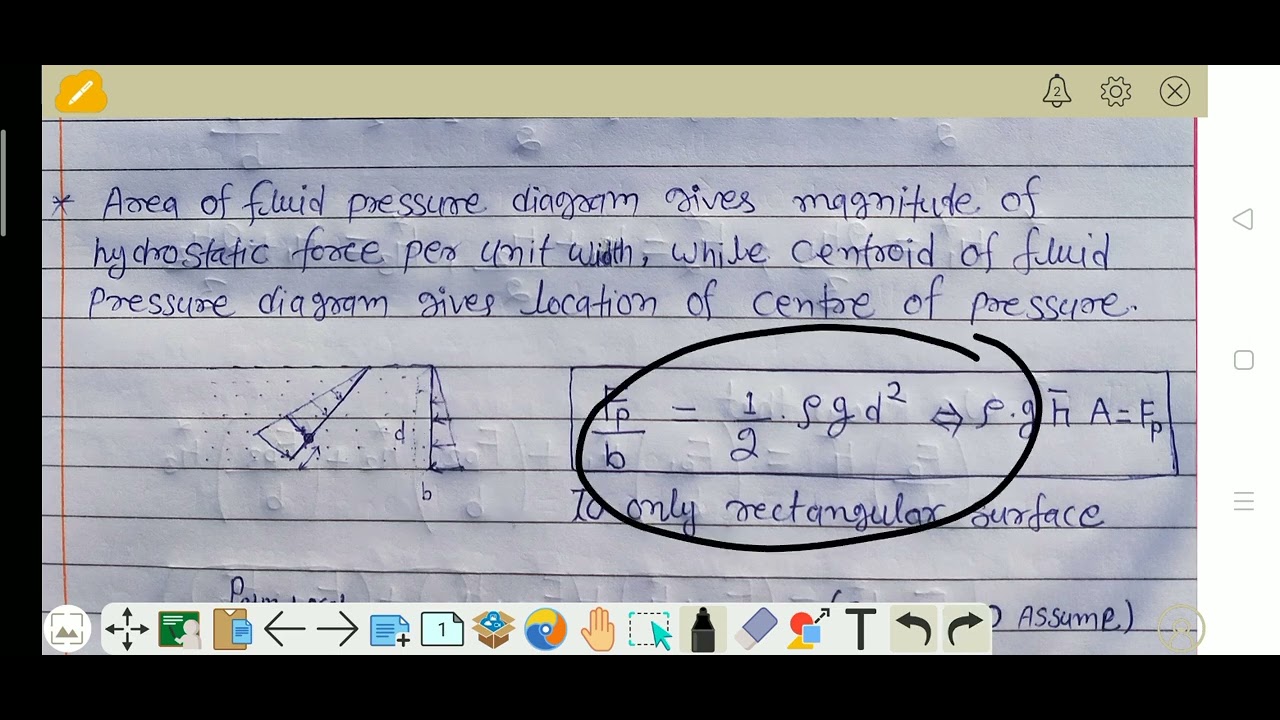 2
* Area of fluid pressure diagram gives magnitude of
hydrostatic force per unit width, while centroid of fluid
Pressure diagram gives location of centre of pressure.
Fp/b = 1/2 · ρgd² ⇔ ρ.g h̄ A = Fp
d
b
To only rectangular surface
Assume)
1
T